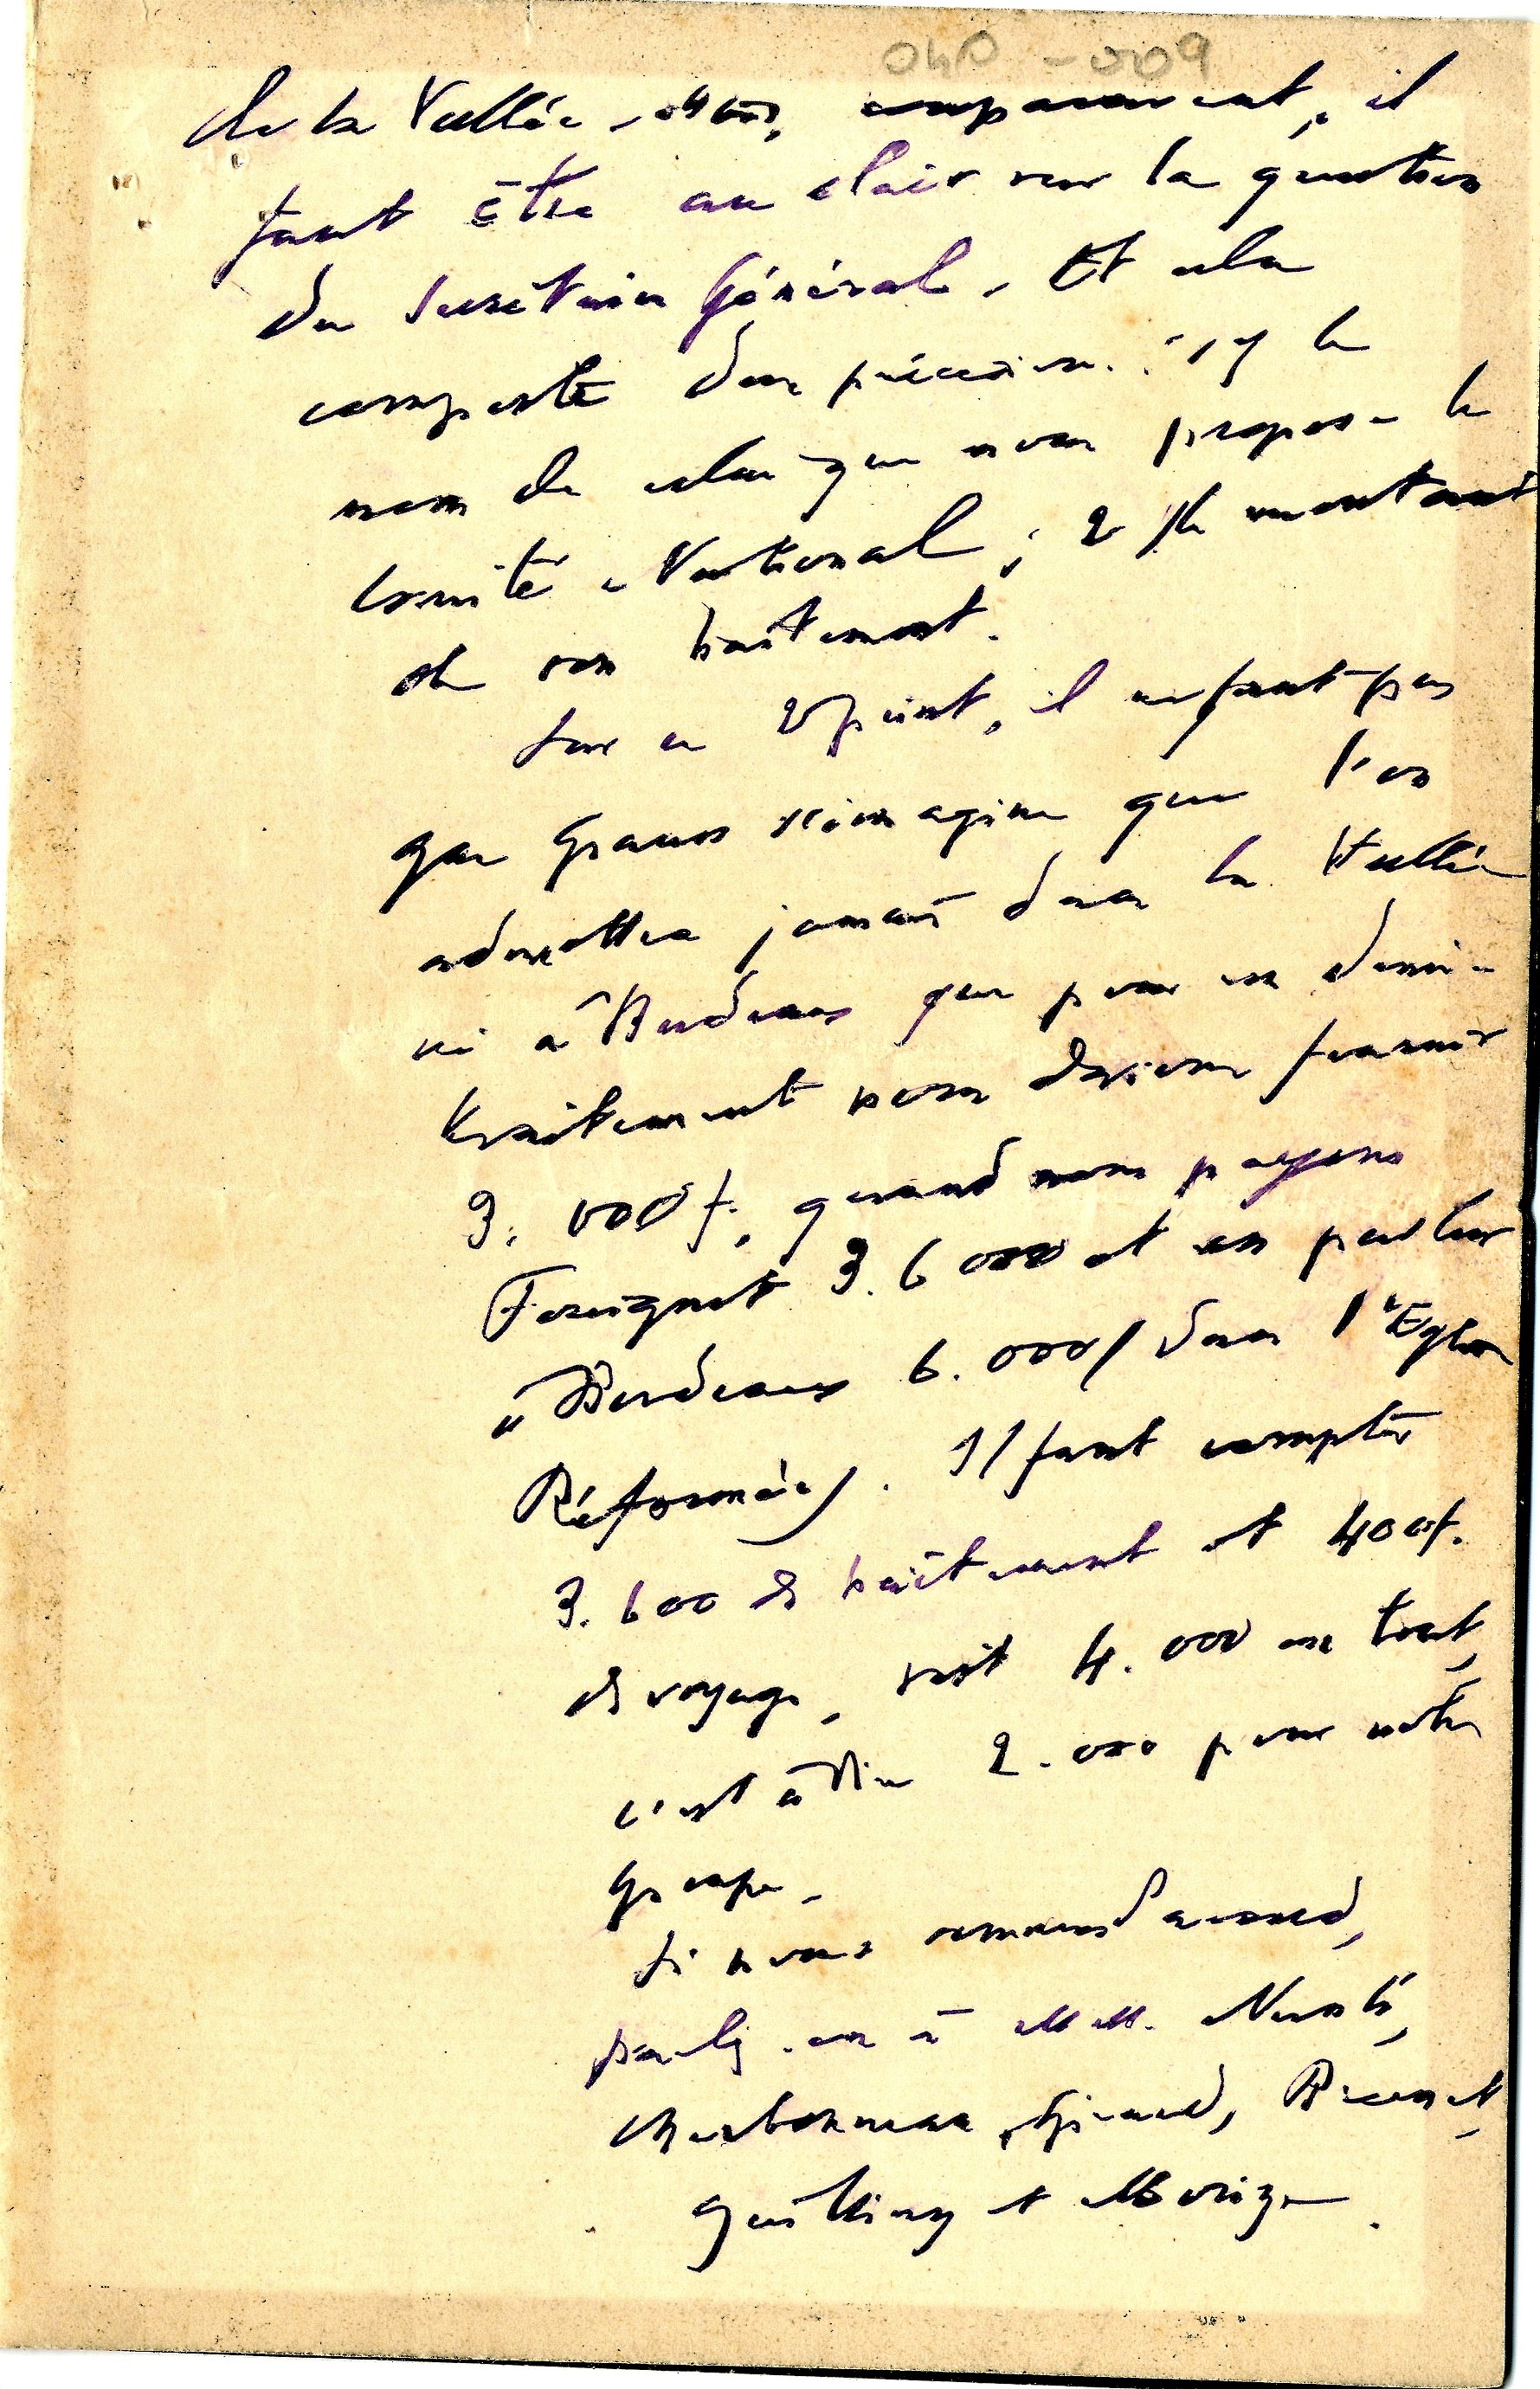 040 - 009
de la Vallée, auparavant, il
faut être au clair sur la question
du Secrétaire Général. Et cela
comporte deux précisions : 1) le
nom de celui que nous propose le
Comité National ; 2) le montant
de son traitement.
Sur ce 2) point, il ne faut pas
que Grauss s'imagine que l'on
admettra jamais dans la Vallée
ni à Bordeaux que pour un demi-
traitement nous devions fournir
3.000 f., quand nous payons
3.6000 et un pasteur
à Bordeaux 6.000 (dans l'Eglise
Réformée). Il faut compter
3.600 de traitement et 400 f.
de voyage, soit 4.000 en tout,
c'est à dire 2.000 pour notre
Groupe.
Si nous sommes d'accord,
parlez-en à MM.
Charbonneau, Girard,
et